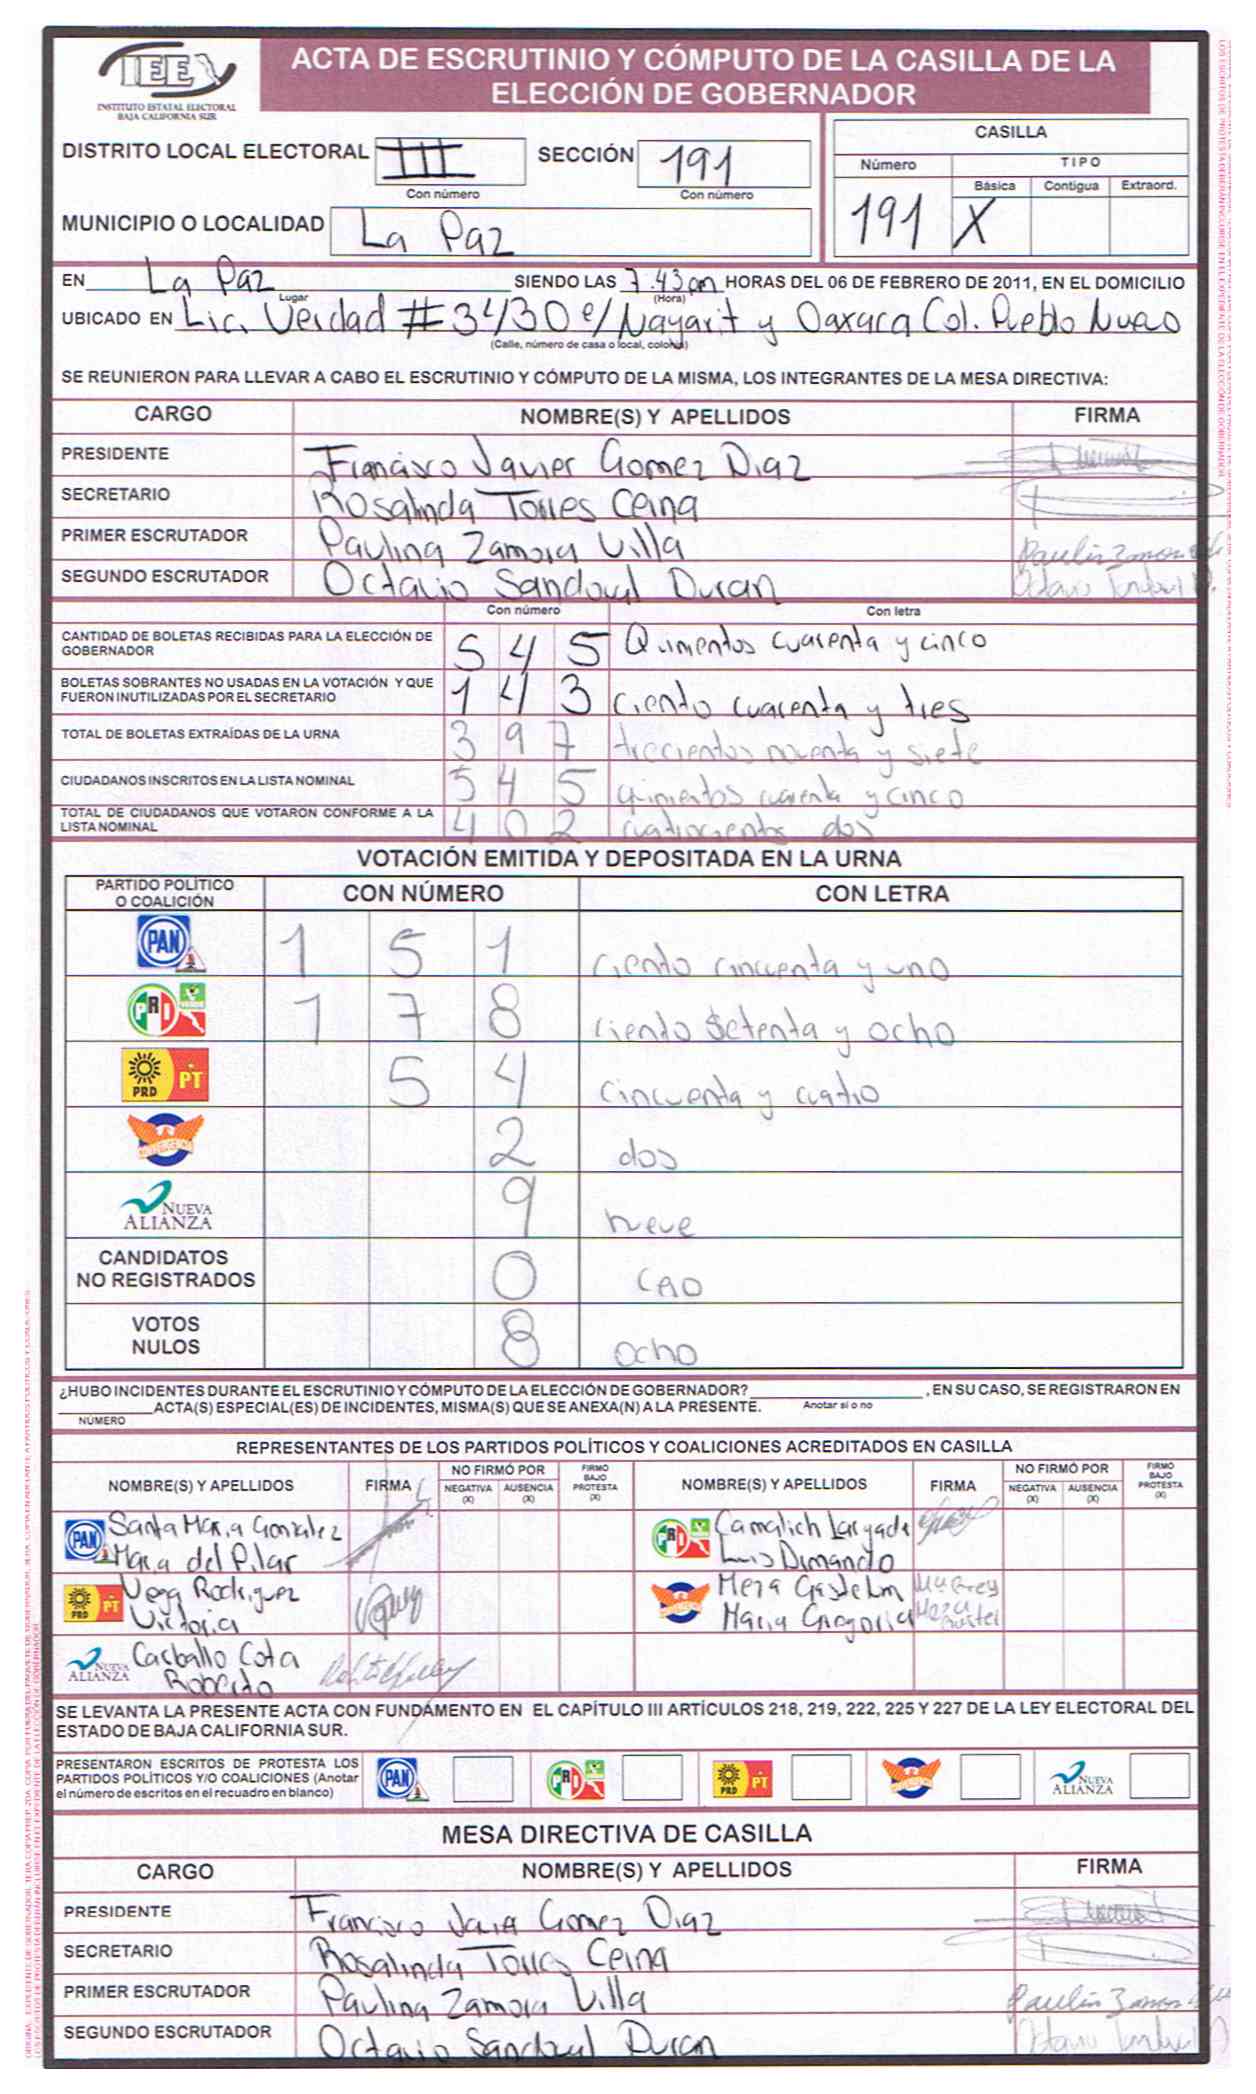 IEE
INSTITUTO ESTATAL ELECTORAL
BAJA CALIFORNIA SUR
ACTA DE ESCRUTINIO Y CÓMPUTO DE LA CASILLA DE LA
ELECCIÓN DE GOBERNADOR
DISTRITO LOCAL ELECTORAL III SECCIÓN 191
Con número Con número
MUNICIPIO O LOCALIDAD La Paz
CASILLA
Número TIPO
Básica Contigua Extraord.
191 X
EN La Paz SIENDO LAS 7:43 pm HORAS DEL 06 DE FEBRERO DE 2011, EN EL DOMICILIO
Lugar (Hora)
UBICADO EN Lic. Verdad #3430 e/ Nayarit y Oaxaca Col. Pueblo Nuevo
(Calle, número de casa o local, colonia)
SE REUNIERON PARA LLEVAR A CABO EL ESCRUTINIO Y CÓMPUTO DE LA MISMA, LOS INTEGRANTES DE LA MESA DIRECTIVA:
CARGO NOMBRE(S) Y APELLIDOS FIRMA
PRESIDENTE Francisco Javier Gomez Diaz
SECRETARIO Rosalinda Torres Ceina
PRIMER ESCRUTADOR Paulina Zamora Villa
SEGUNDO ESCRUTADOR Octavio Sandoval Duran
Con número Con letra
CANTIDAD DE BOLETAS RECIBIDAS PARA LA ELECCIÓN DE
GOBERNADOR 545 Quinientos cuarenta y cinco
BOLETAS SOBRANTES NO USADAS EN LA VOTACIÓN Y QUE
FUERON INUTILIZADAS POR EL SECRETARIO 143 ciento cuarenta y tres
TOTAL DE BOLETAS EXTRAÍDAS DE LA URNA 397 trecientos noventa y siete
CIUDADANOS INSCRITOS EN LA LISTA NOMINAL 545 quinientos cuarenta y cinco
TOTAL DE CIUDADANOS QUE VOTARON CONFORME A LA
LISTA NOMINAL 402 cuatrocientos dos
VOTACIÓN EMITIDA Y DEPOSITADA EN LA URNA
PARTIDO POLÍTICO
O COALICIÓN CON NÚMERO CON LETRA
PAN 151 ciento cincuenta y uno
PRI VERDE 178 ciento setenta y ocho
PRD PT 54 cincuenta y cuatro
CONVERGENCIA 2 dos
NUEVA ALIANZA 9 nueve
CANDIDATOS
NO REGISTRADOS 0 cero
VOTOS
NULOS 8 ocho
¿HUBO INCIDENTES DURANTE EL ESCRUTINIO Y CÓMPUTO DE LA ELECCIÓN DE GOBERNADOR? , EN SU CASO, SE REGISTRARON EN
ACTA(S) ESPECIAL(ES) DE INCIDENTES, MISMA(S) QUE SE ANEXA(N) A LA PRESENTE. Anotar si o no
NÚMERO
REPRESENTANTES DE LOS PARTIDOS POLÍTICOS Y COALICIONES ACREDITADOS EN CASILLA
NOMBRE(S) Y APELLIDOS FIRMA NO FIRMÓ POR NEGATIVA (X) AUSENCIA (X) FIRMO BAJO PROTESTA (X) NOMBRE(S) Y APELLIDOS FIRMA NO FIRMÓ POR NEGATIVA (X) AUSENCIA (X) FIRMO BAJO PROTESTA (X)
PAN Santa Maria Gonzalez
Maria del Pilar
PRI Camalich
Luis
PRD PT Vega Rodriguez
Victoria
Meza Gastelum
Maria Gregoria
NUEVA ALIANZA Carballo Cota
Roberto
SE LEVANTA LA PRESENTE ACTA CON FUNDAMENTO EN EL CAPÍTULO III ARTÍCULOS 218, 219, 222, 225 Y 227 DE LA LEY ELECTORAL DEL
ESTADO DE BAJA CALIFORNIA SUR.
PRESENTARON ESCRITOS DE PROTESTA LOS
PARTIDOS POLÍTICOS Y/O COALICIONES (Anotar
el número de escritos en el recuadro en blanco)
PAN PRI PRD PT NUEVA ALIANZA
MESA DIRECTIVA DE CASILLA
CARGO NOMBRE(S) Y APELLIDOS FIRMA
PRESIDENTE Francisco Javier Gomez Diaz
SECRETARIO Rosalinda Torres Ceina
PRIMER ESCRUTADOR Paulina Zamora Villa
SEGUNDO ESCRUTADOR Octavio Sandoval Duran